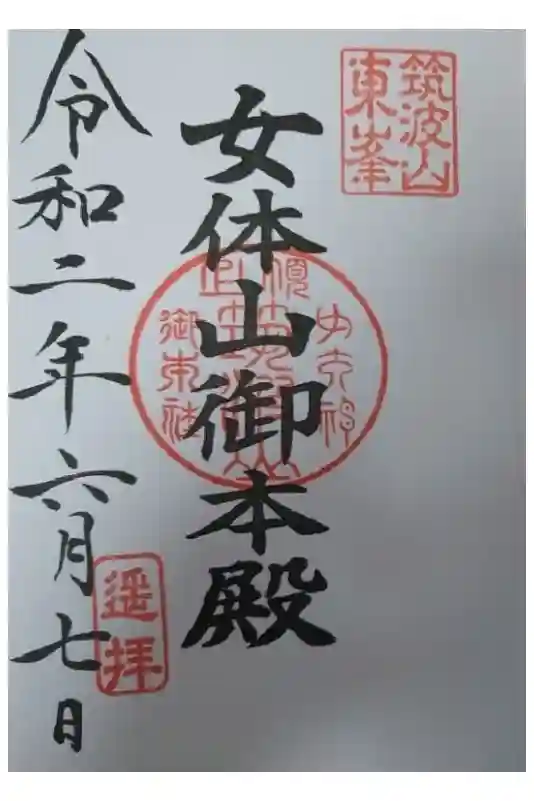 筑波山
東峯
女体山御本殿
遥拝
令和二年六月七日